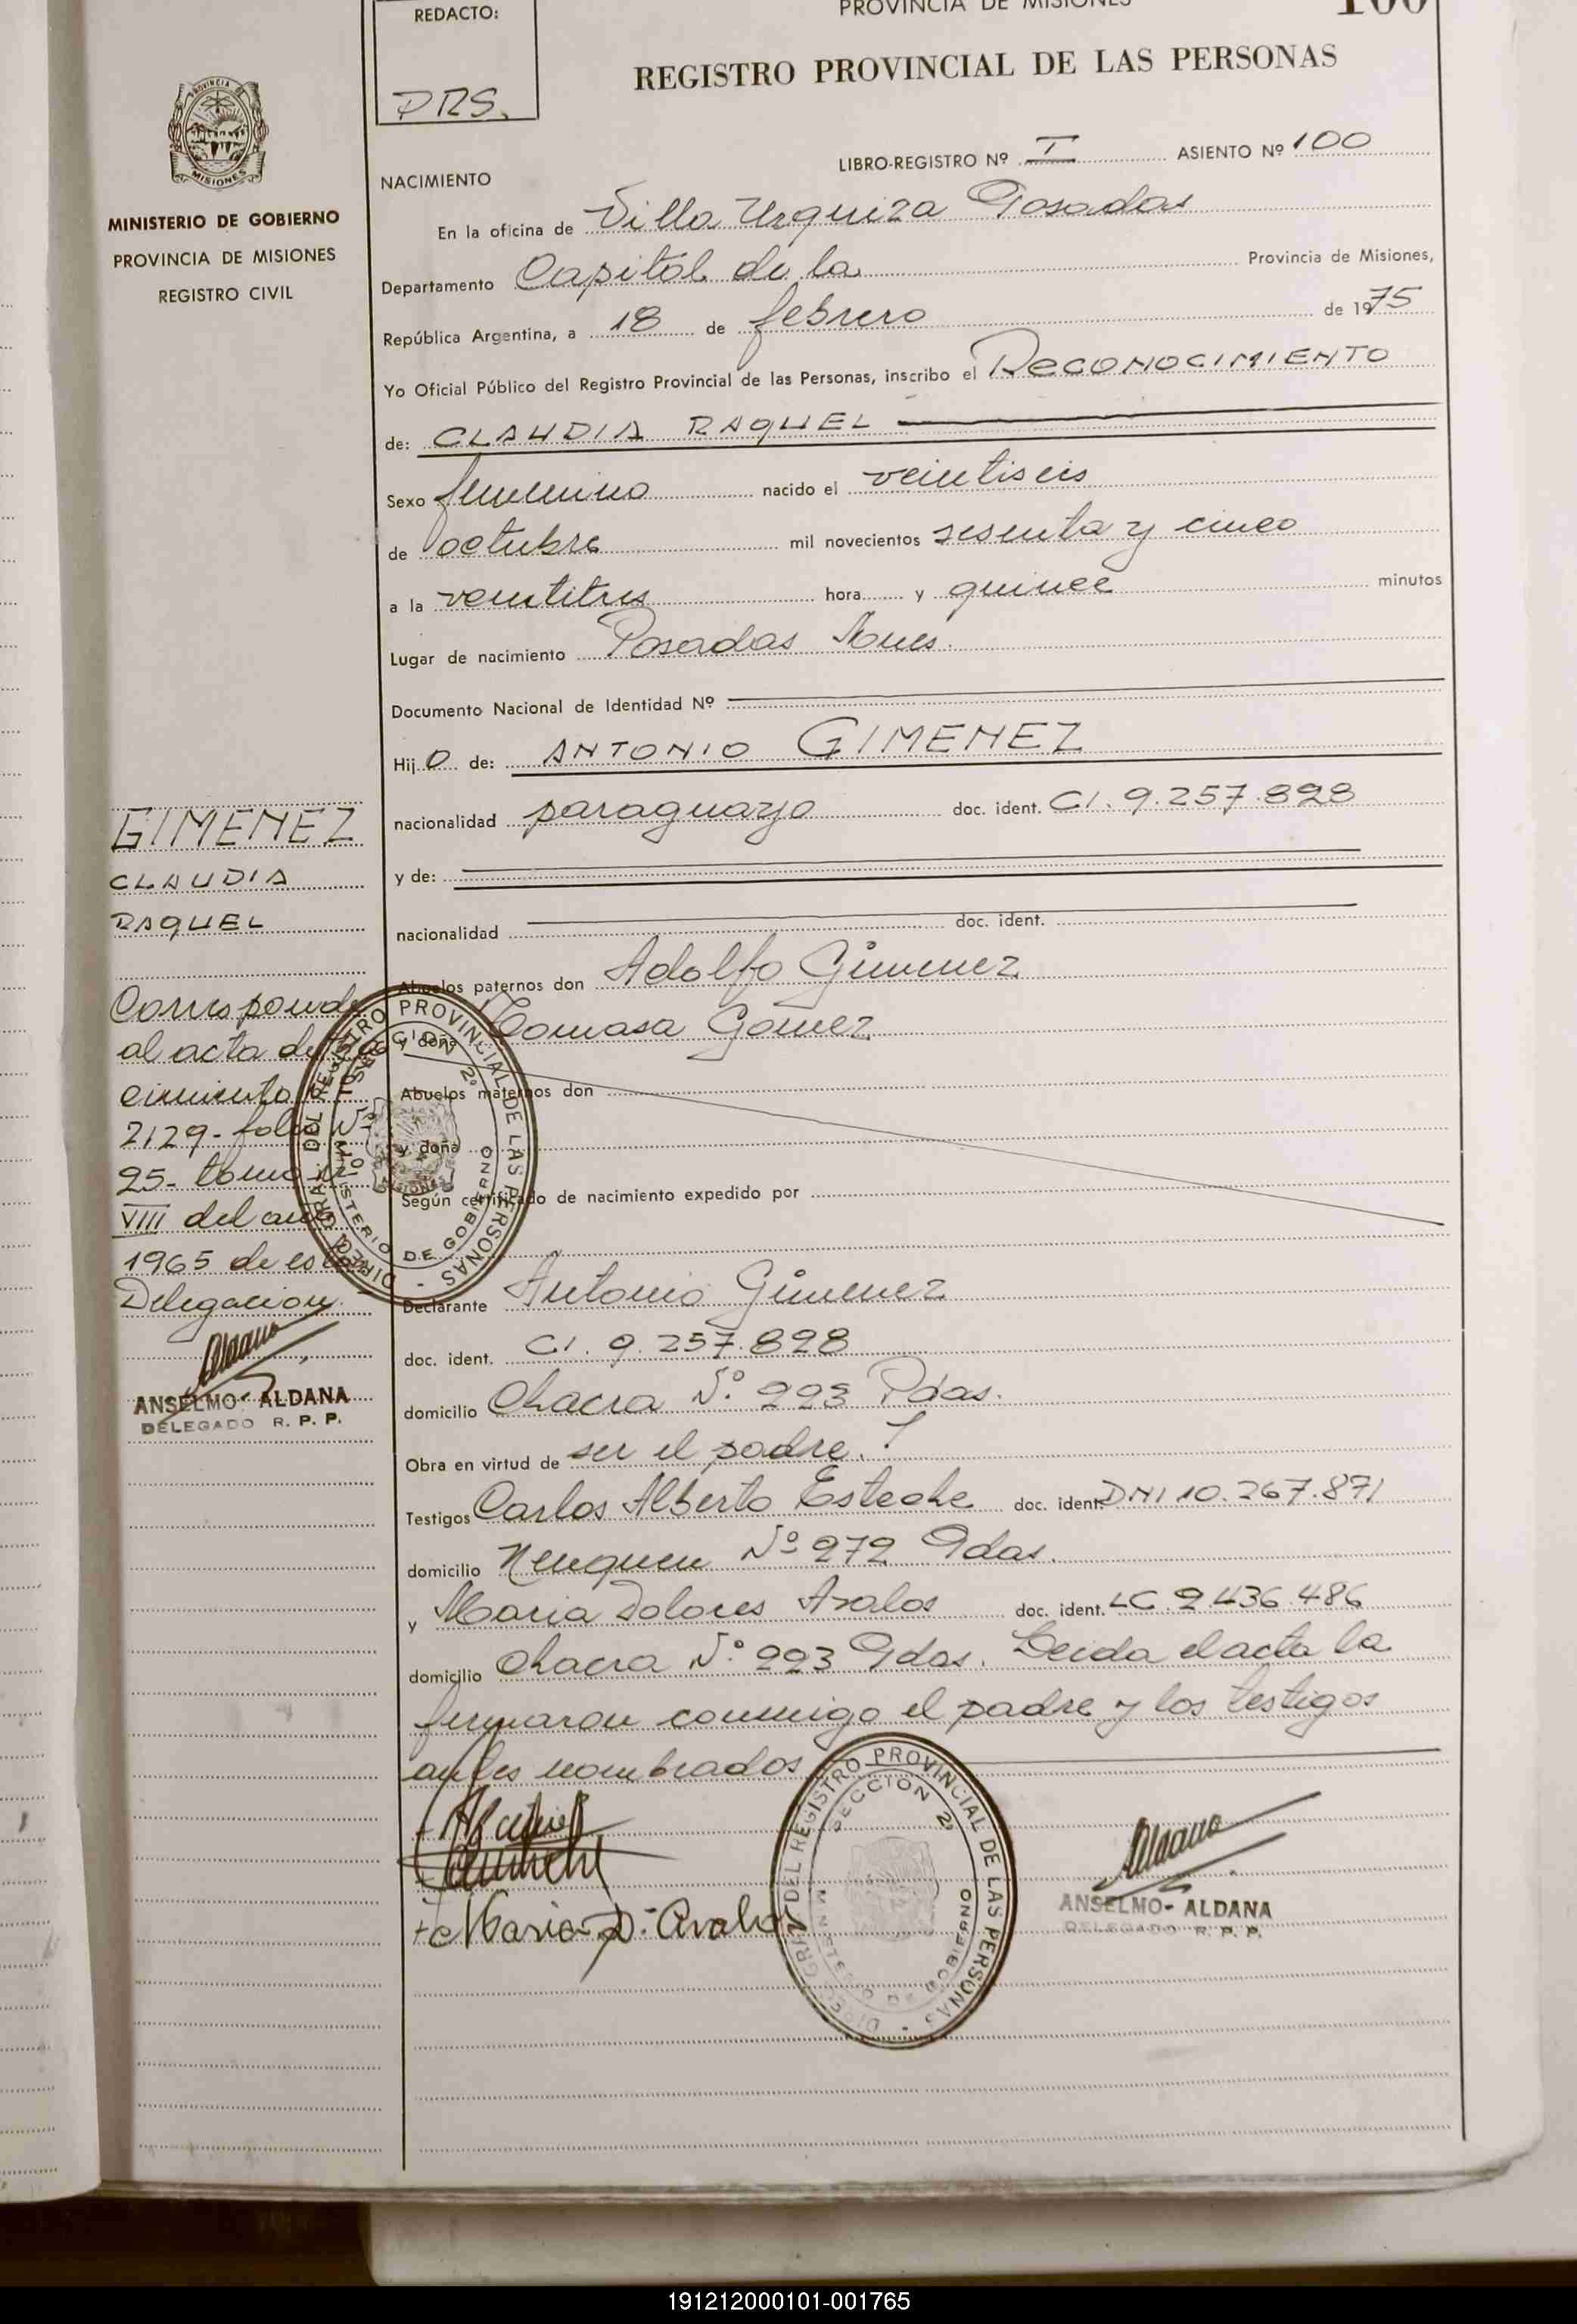 REDACTO:
PRS.
PROVINCIA DE MISIONES
100
REGISTRO PROVINCIAL DE LAS PERSONAS
LIBRO-REGISTRO Nº I ASIENTO Nº 100
NACIMIENTO
En la oficina de Villa Urquiza Posadas
Departamento Capital de la Provincia de Misiones,
República Argentina, a 18 de febrero de 1975
Yo Oficial Público del Registro Provincial de las Personas, inscribo el RECONOCIMIENTO
de: CLAUDIA RAQUEL
Sexo femenino nacido el veintiseis
de octubre mil novecientos sesenta y cinco
a la veintitres hora y quince minutos
Lugar de nacimiento Posadas Mnes.
Documento Nacional de Identidad Nº
Hij o de: ANTONIO GIMENEZ
nacionalidad paraguayo doc. ident. CI. 9.257.898
y de:
nacionalidad doc. ident.
Abuelos paternos don Adolfo Gimenez
y doña Tomasa Gomez
Abuelos maternos don
y doña
Según certificado de nacimiento expedido por
Declarante Antonio Gimenez
doc. ident. CI. 9.257.898
domicilio Chacra Nº 223 Pdas.
Obra en virtud de ser el padre.
Testigos Carlos Alberto Esteche doc. ident. DNI 10.267.871
domicilio Neuquen Nº 272 Pdas.
y Maria Dolores Avalos doc. ident. LC 2.436.486
domicilio Chacra Nº 223 Pdas. Leida el acta la
firmaron conmigo el padre y los testigos
antes nombrados
Maria D. Avalos
DIREC. GRAL. DEL REGISTRO PROVINCIAL DE LAS PERSONAS
SECCION 2ª
MINISTERIO DE GOBIERNO
Aldana
ANSELMO ALDANA
DELEGADO R. P. P.
PROVINCIA DE
MISIONES
MINISTERIO DE GOBIERNO
PROVINCIA DE MISIONES
REGISTRO CIVIL
GIMENEZ
CLAUDIA
RAQUEL
Corresponde
al acta de na
cimiento Nº
2129- folio Nº
25- tomo Nº
VIII del año
1965 de esta
Delegacion.
Aldana
ANSELMO ALDANA
DELEGADO R. P. P.
DIREC. GRAL. DEL REGISTRO PROVINCIAL DE LAS PERSONAS
SECCION 2ª
MINISTERIO DE GOBIERNO
191212000101-001765